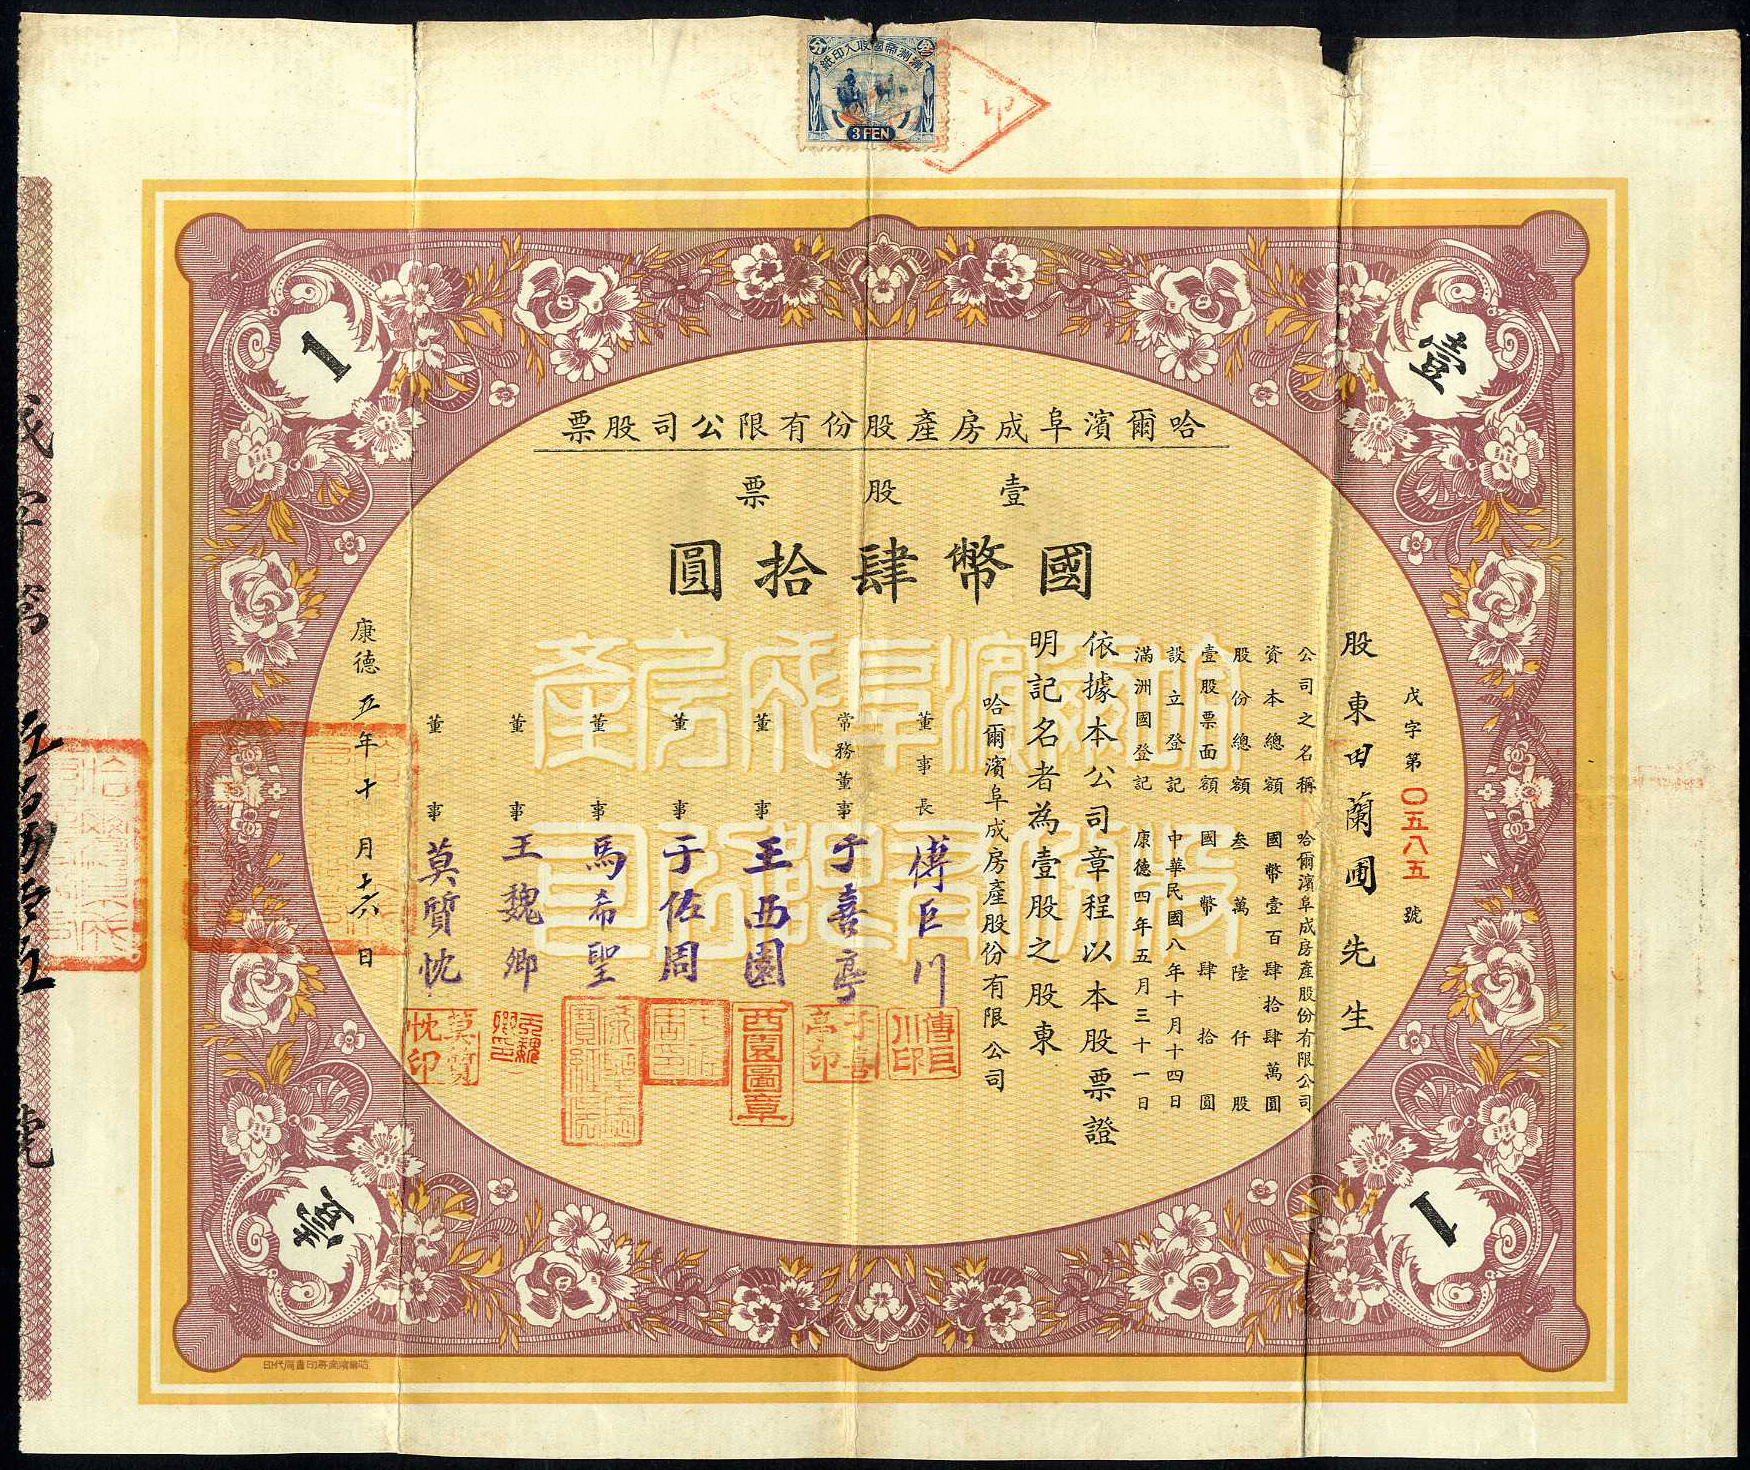 滿洲帝國收入印紙
3 FEN
壹
1
哈爾濱阜成房產股份有限公司股票
壹股票
國幣肆拾圓
戊字第〇五八五號
股東田蘭圃先生
公司之名稱 哈爾濱阜成房產股份有限公司
資本總額 國幣壹百肆拾肆萬圓
股份總額 叁萬陸仟股
壹股票面額 國幣肆拾圓
設立登記 中華民國八年十月十四日
滿洲國登記 康德四年五月三十一日
依據本公司章程以本股票證
明記名者為壹股之股東
哈爾濱阜成房產股份有限公司
董事長 傅巨川
常務董事 于喜亭
董事 王西園
董事 于佐周
董事 馬希聖
董事 王魏卿
董事 莫質忱
康德五年十月十六日
哈爾濱阜成房產
股份有限公司
傅巨川印
于喜亭印
西園圖章
莫質忱印
1
壹